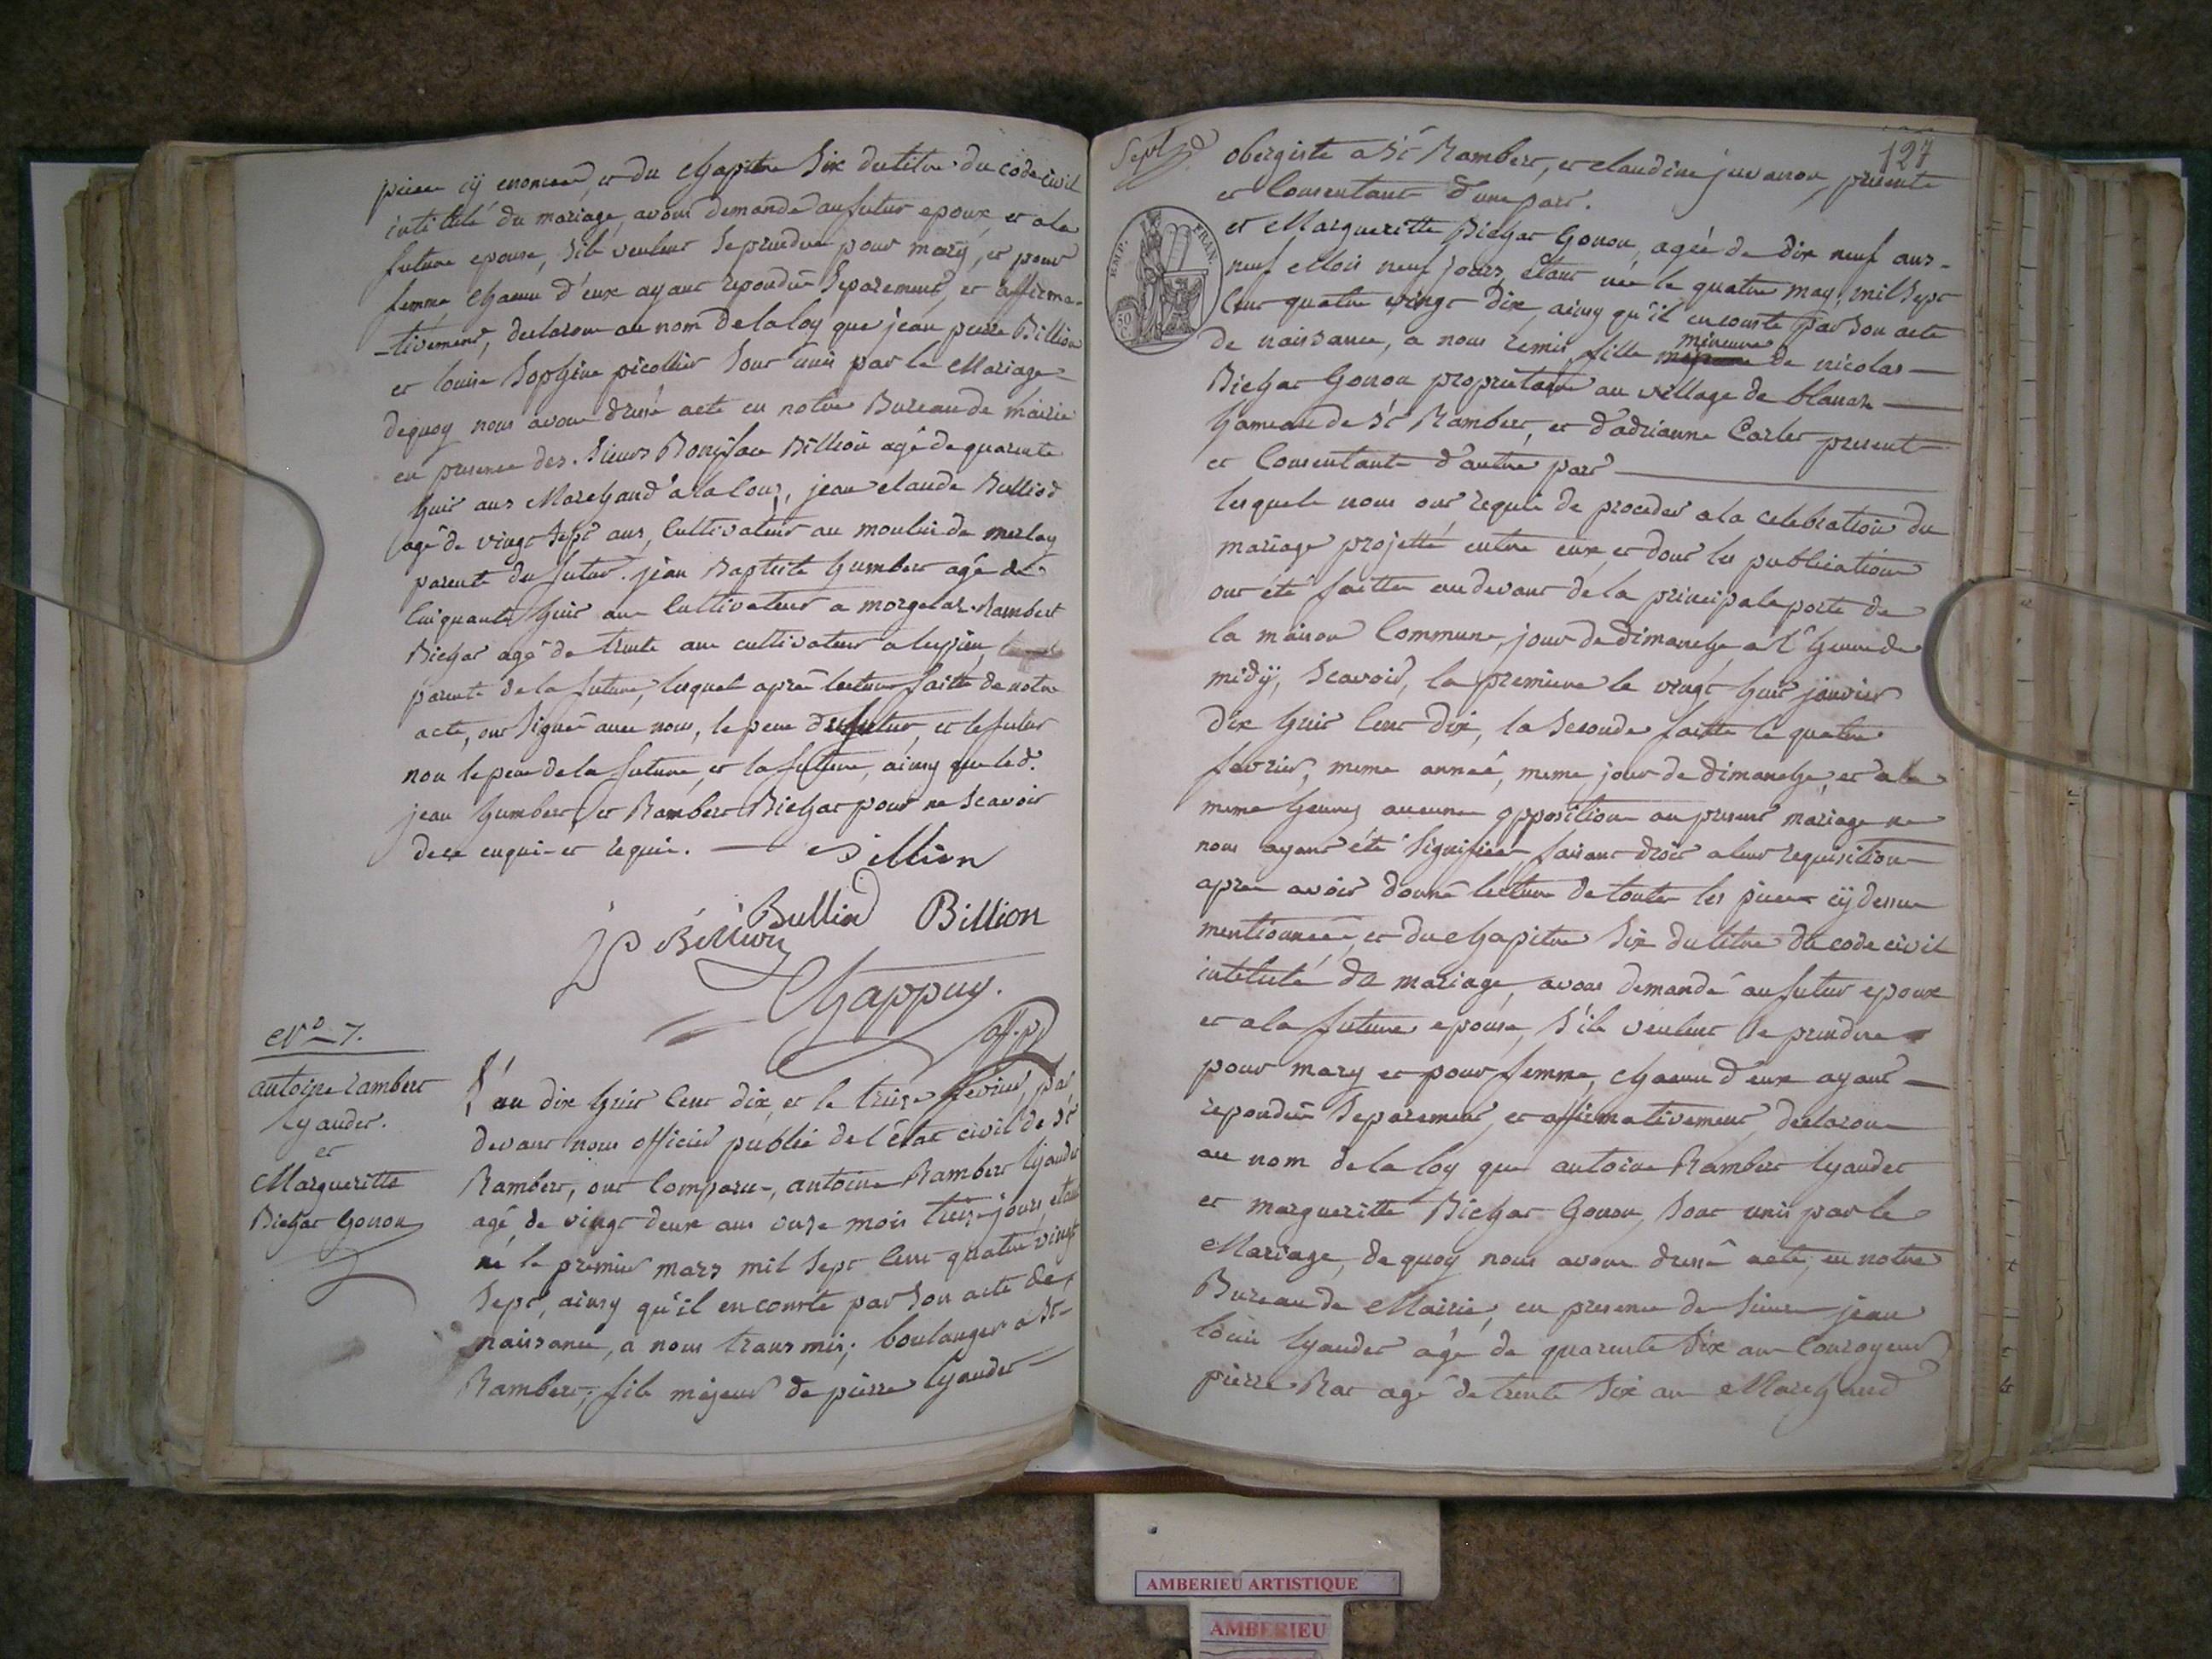 piece cÿ enoncees, et du chapitre Six du titre du code civil
intitulé du mariage, avons demandé au futur epoux, et a la
future epouse, s'ils veulent se prendre pour mary, et pour
femme chacun d'eux ayant repondu Séparement, et affirma-
-tivement, declarons au nom de la loy que jean pierre Billion
et louise Sophine picollier Sont unis par le Mariage
de quoy nous avons dressé acte en notre Bureau de mairie
en presence des Sieurs Boniface Billion agé de quarente
huit ans Marchand a la Cour, jean claude Bulliod
agé de vingt Sept ans, Cultivateur au moulin de merlay
parents du futur. jean Baptiste humbert agé de
Cinquante huit ans Cultivateur a morgelas. Rambert
Bichat agé de trente ans cultivateur a lupieu
parents de la future, lesquels après lecture faitte de notre
acte, ont Signé avec nous, le pere du futur, et le futur
non le pere de la future, et la future, ainsy que led.
jean humbert, et Rambert Bichat pour ne Scavoir
de ce enquis et requis. — Billion
Bulliod Billion
JP Billion
Chappuy.
off. p.
N.° 7.
antoine rambert
lyaudet.
et
Margueritte
Bichat Gonon
L'an dix huit Cent dix, et le treize fevrier, par
devant nous officier public de l'état civil de St
Rambert, ont Comparu, antoine Rambert lyaudet
agé de vingt deux ans onze mois treize jours, etant
né le premier mars mil Sept Cent quatre vingt
Sept, ainsy qu'il en conste par Son acte de
naissance, a nous transmis; boulanger a St-
Rambert, fils majeur de pierre lyaudet
Sept
127
obergiste a St Rambert, et claudine juvanon, presents
et Consentants d'une part.
EMP. FRAN.
50
C.
et Margueritte Bichat Gonon, agée de dix neuf ans
neuf Mois neuf jours, étant née le quatre may, mil Sept
Cent quatre vingt dix, ainsy qu'il en conste par Son acte
mineure
de naissance, a nous remis, fille de nicolas
Bichat Gonon proprietaire au village de blanas
hameau de St Rambert, et d'adrianne Carlet presents
et Consentants d'autre part
lesquels nous ont requis de proceder a la celebration du
mariage projetté entre eux et dont les publications
ont été faittes au devant de la principale porte de
la maison Commune, jour de dimanche a l'heure de
midÿ, Scavoir, la premiere le vingt huit janvier
dix huit Cent dix, la Seconde faitte le quatre
fevrier, meme année, meme jour de dimanche, et a la
meme heure, aucune opposition au present mariage ne
nous ayant été Signifiée, faisant droit a leur requisition
apres avoir donné lecture de toutes les pieces cÿ dessus
mentionnées, et du chapitre Six du titre du code civil
intitulé du mariage, avons demandé au futur epoux
et a la future epouse, S'ils veulent Se prendre
pour mary et pour femme, chacun d'eux ayant
repondu Séparement, et affirmativement, declarons
au nom de la loy que antoine Rambert lyaudet
et margueritte Bichat Gonon, Sont unis par le
Mariage, de quoy nous avons dressé acte, en notre
Bureau de Mairie, en presence de Sieurs jean
louis lyaudet agé de quarente Six ans Couroyeur
pierre Rat agé de trente Six ans Marchand
AMBERIEU ARTISTIQUE
AMBERIEU